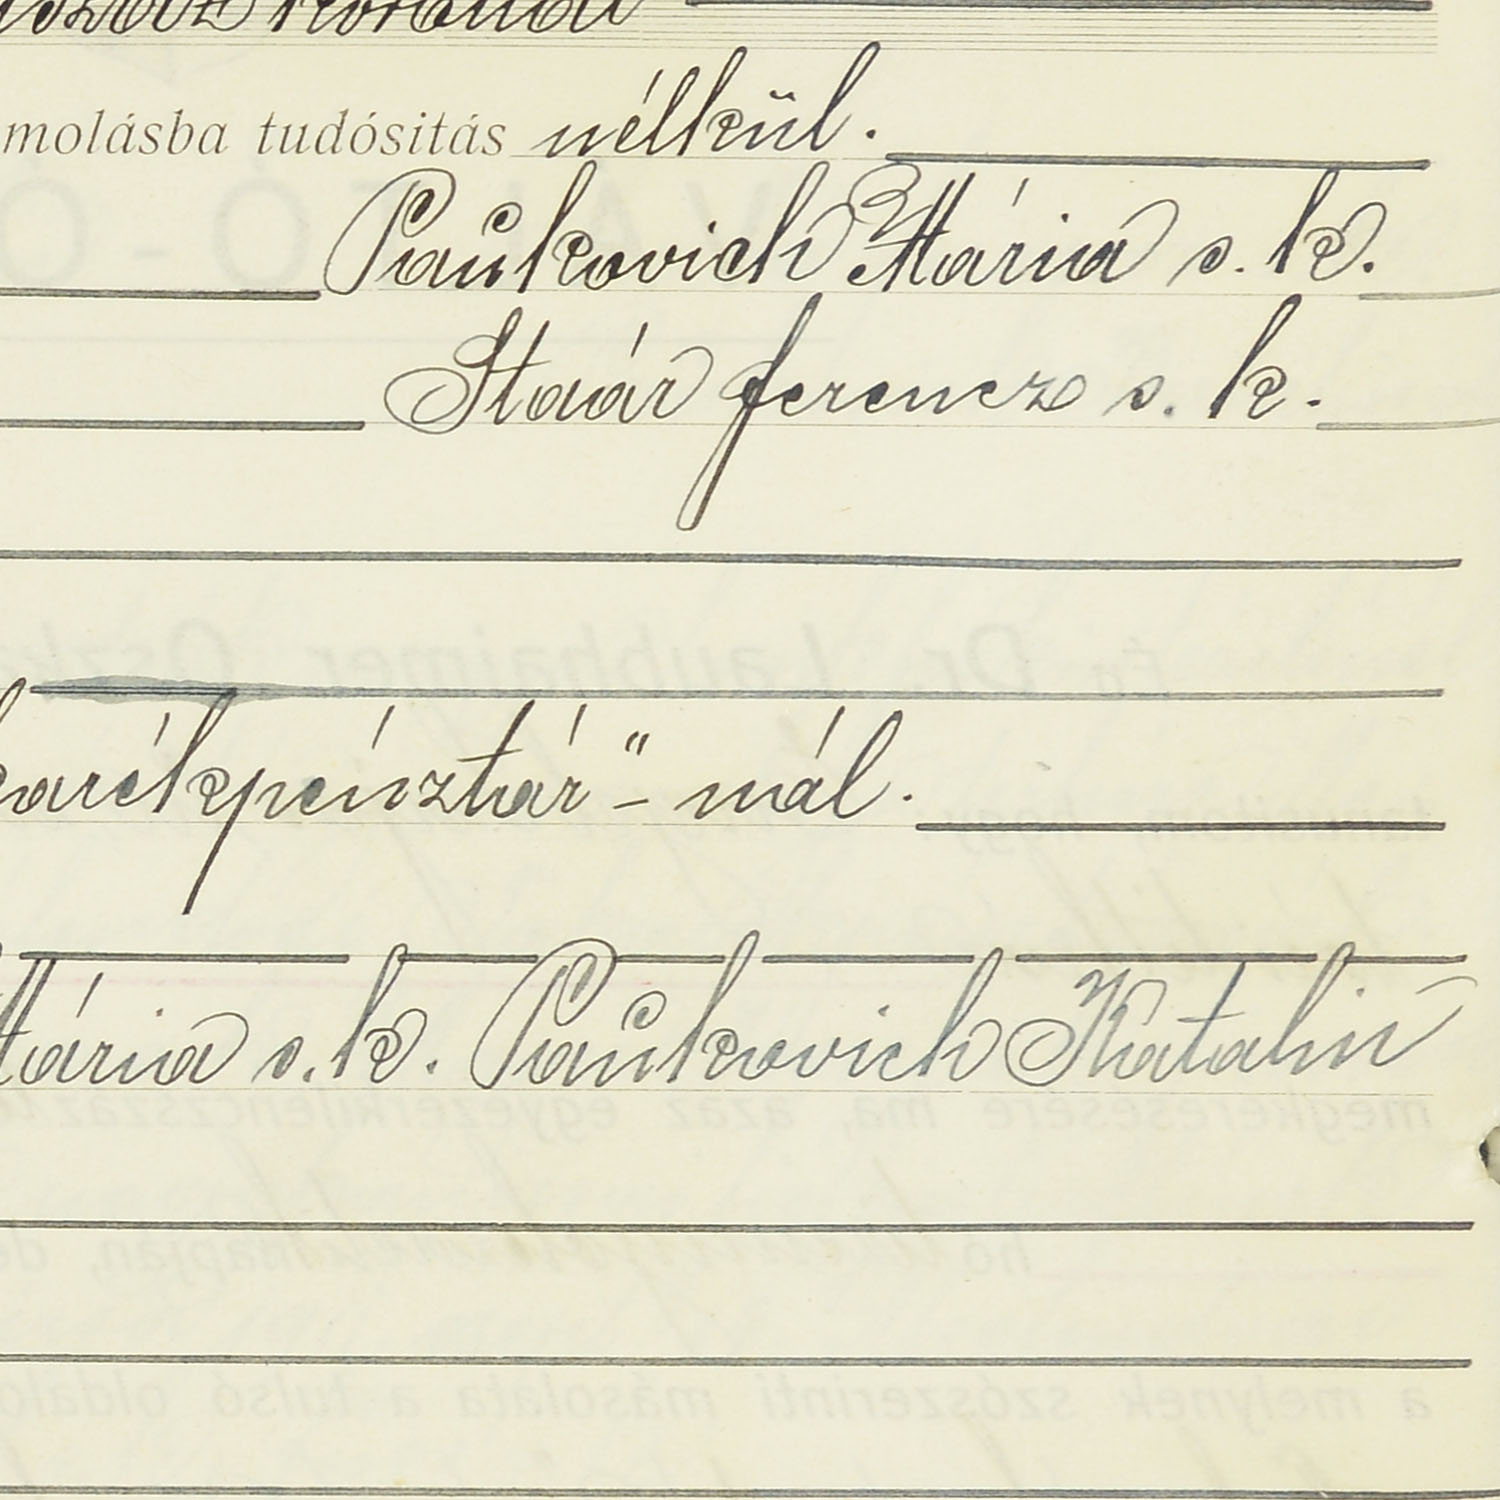 koronát
molásba tudósitás nélkül.
Paukovich Mária s. k.
Staár Ferencz s. k.
karékpénztár"-nál.
Mária s. k. Paukovich Katalin